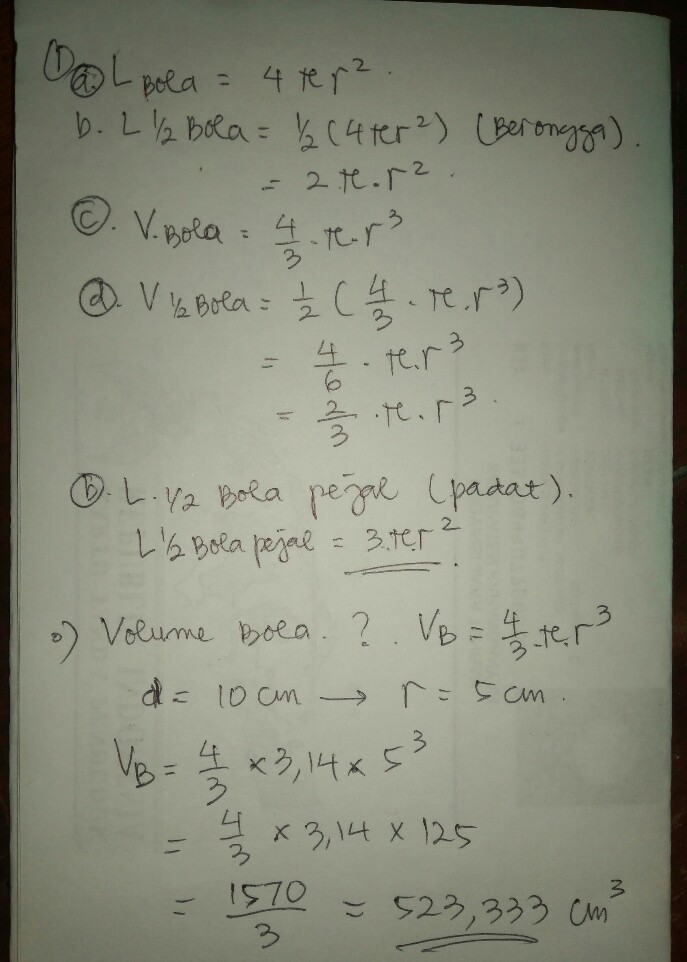 ① ⓐ. L Bola = 4 π r².
b. L ½ Bola = ½ (4πr²) (Berongga).
= 2 π . r².
ⓒ. V. Bola = 4/3 . π . r³
ⓓ. V ½ Bola = 1/2 ( 4/3 . π . r³)
= 4/6 . π . r³
= 2/3 . π . r³.
ⓑ. L. ½ Bola pejal (padat).
L ½ Bola pejal = 3.π.r².
o) Volume Bola. ? . VB = 4/3 . π . r³
d = 10 cm → r = 5 cm.
VB = 4/3 × 3,14 × 5³
= 4/3 × 3,14 × 125
= 1570/3 = 523,333 cm³